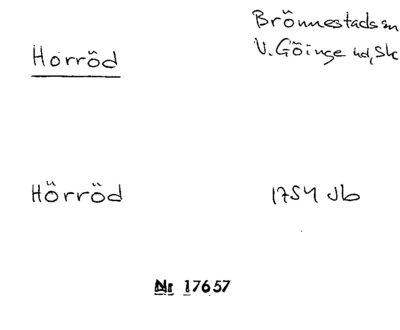 Horröd
Brönnestads sn
V. Göinge hd, Sk
Hörröd
1754 Jb
Nr 17657